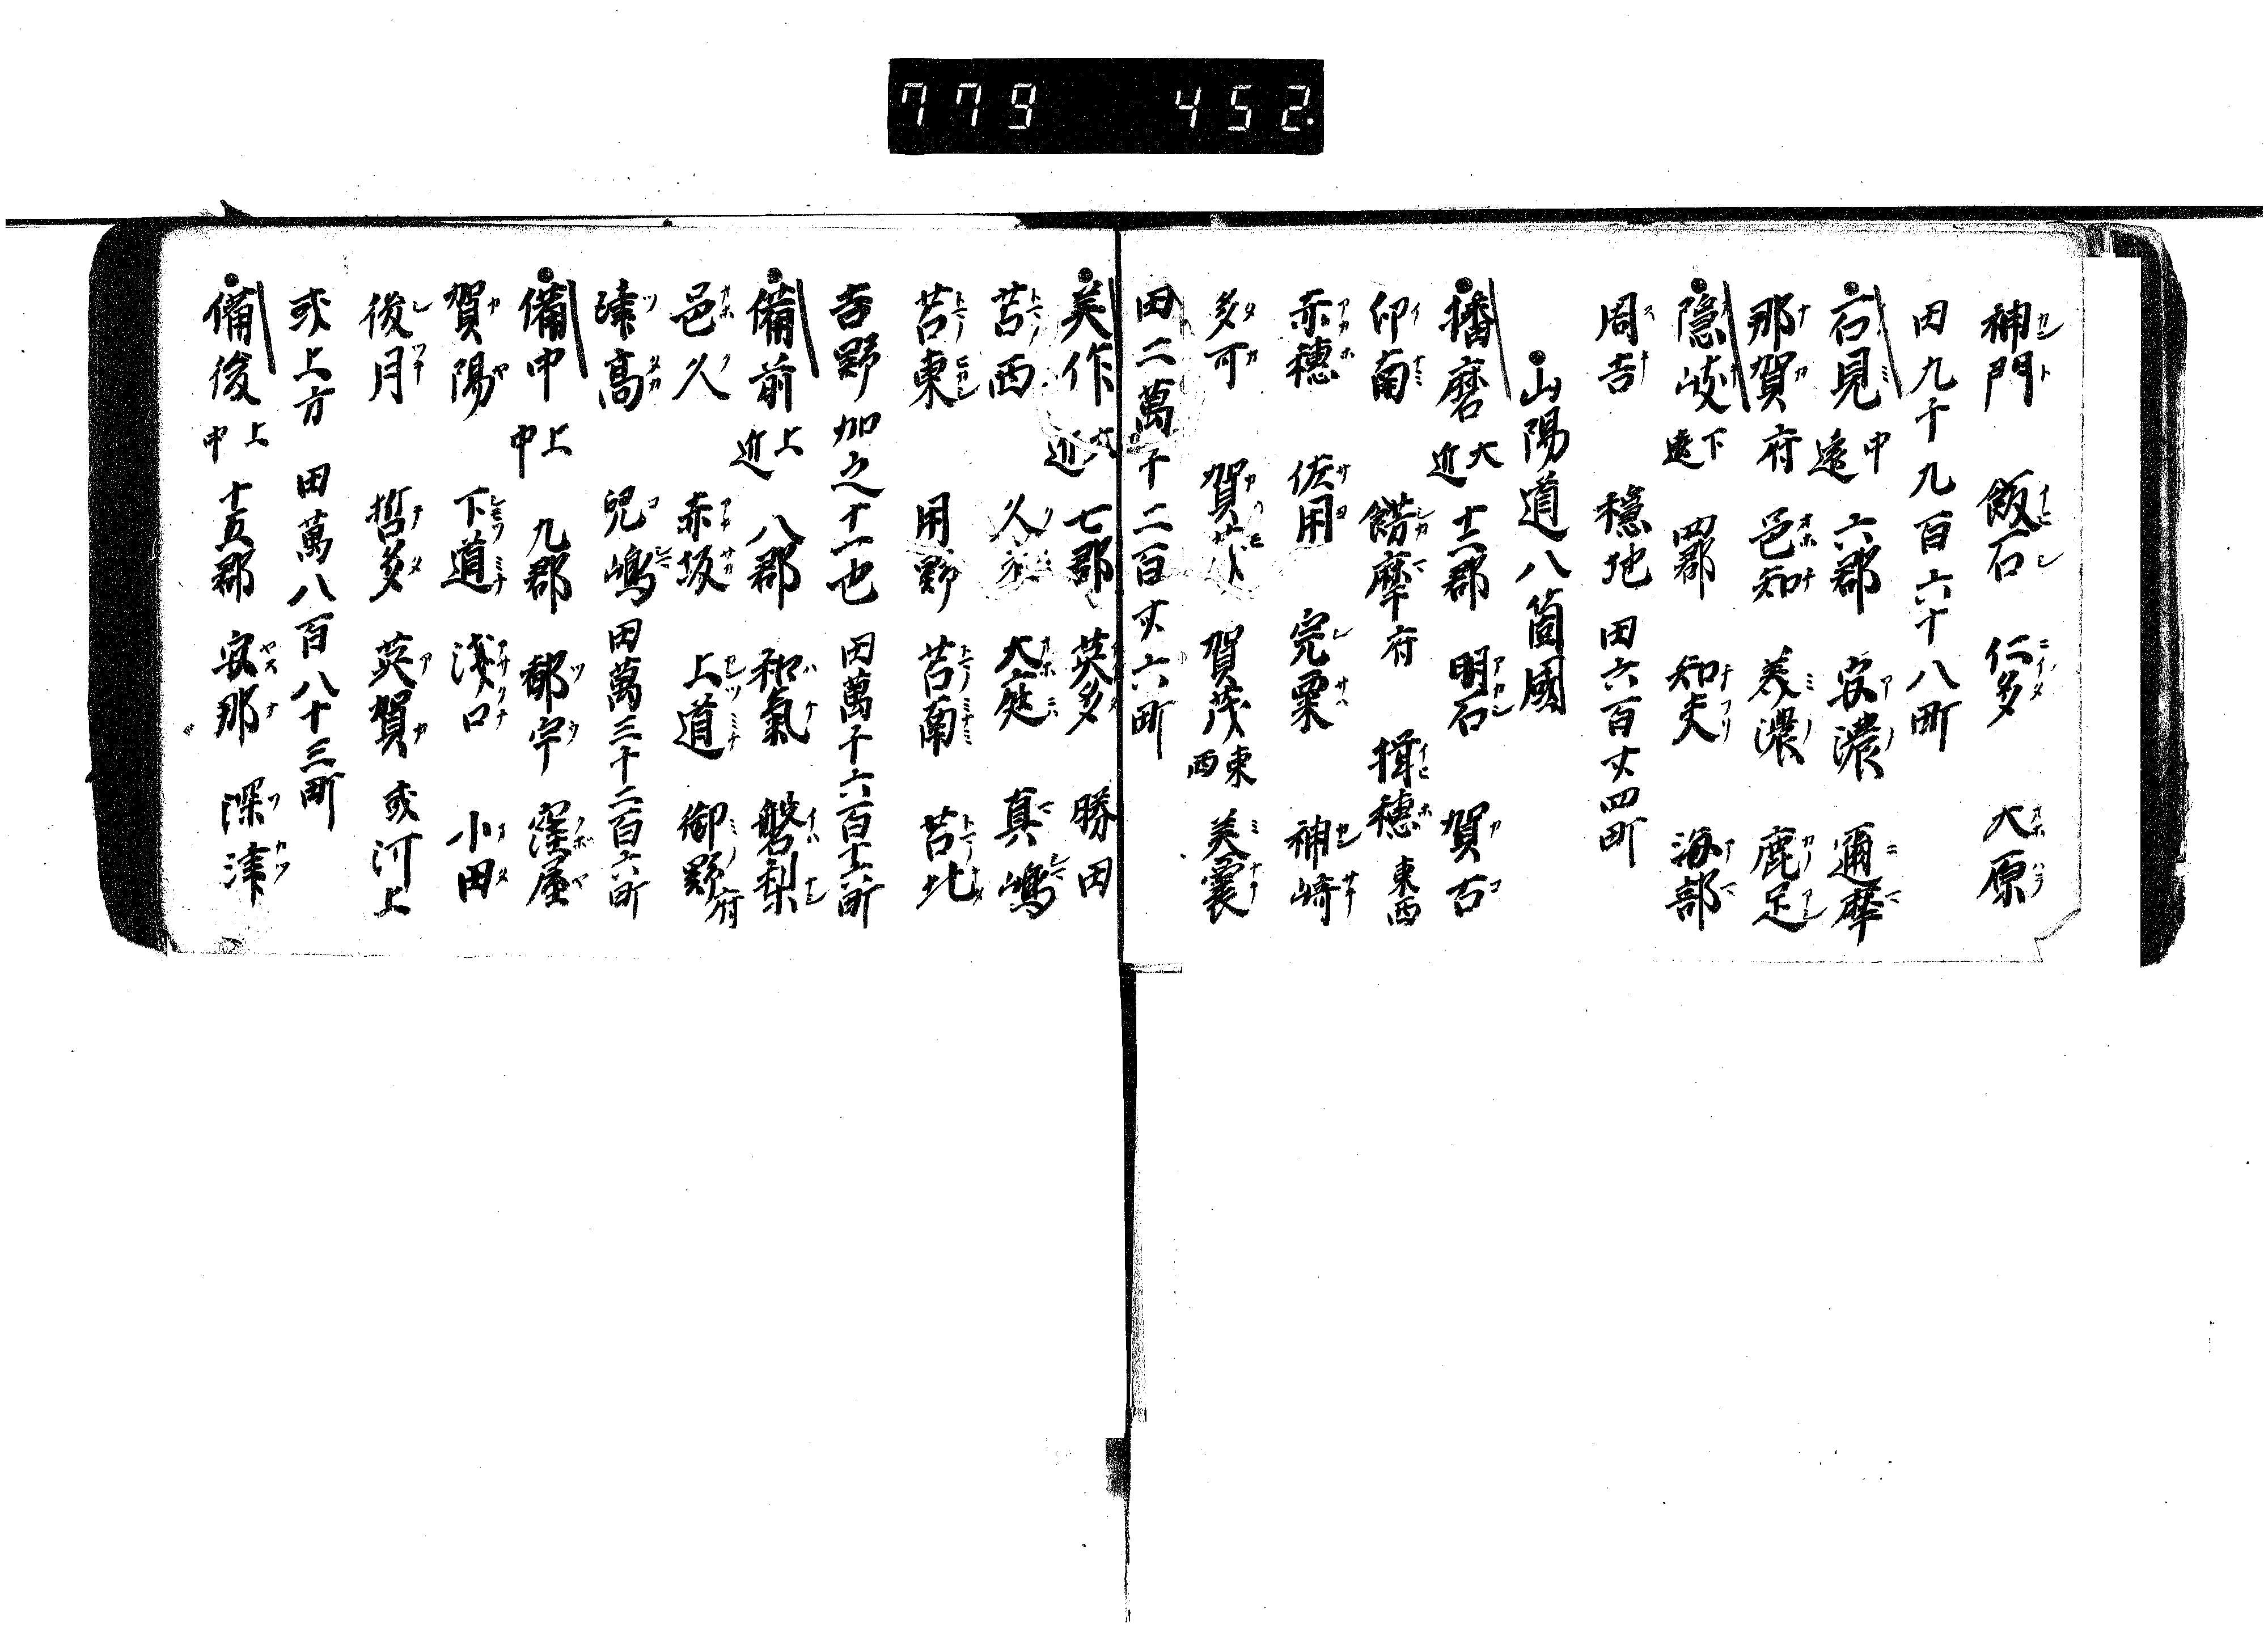 779 452.
神門 飯石 仁多 大原
田九千九百六十八町
石見 中遠 六郡 安濃 邇摩
那賀府 邑知 美濃 鹿足
隠岐 下遠 四郡 知夫 海部
周吉 穏地 田六百丈四町
山陽道八箇國
播磨 大近 十二郡 明石 賀古
印南 餝摩府 揖穂東西
赤穂 佐用 完粟 神崎
多可 賀茂東西 美囊
田二萬千二百丈六町
美作 近 七郡 英多 勝田
苫西 久 大庭 真嶋
苫東 用野 苫南 苫北
吉野加之十一也 田萬千六百十六町
備前 上近 八郡 和氣 磐梨
邑久 赤坂 上道 御野府
津高 兒嶋 田萬三千二百六町
備中 上中 九郡 都宇 窪屋
賀陽 下道 浅口 小田
後月 哲多 英賀 或河上
或上方 田萬八百八十三町
備後 上中 十五郡 安那 深津